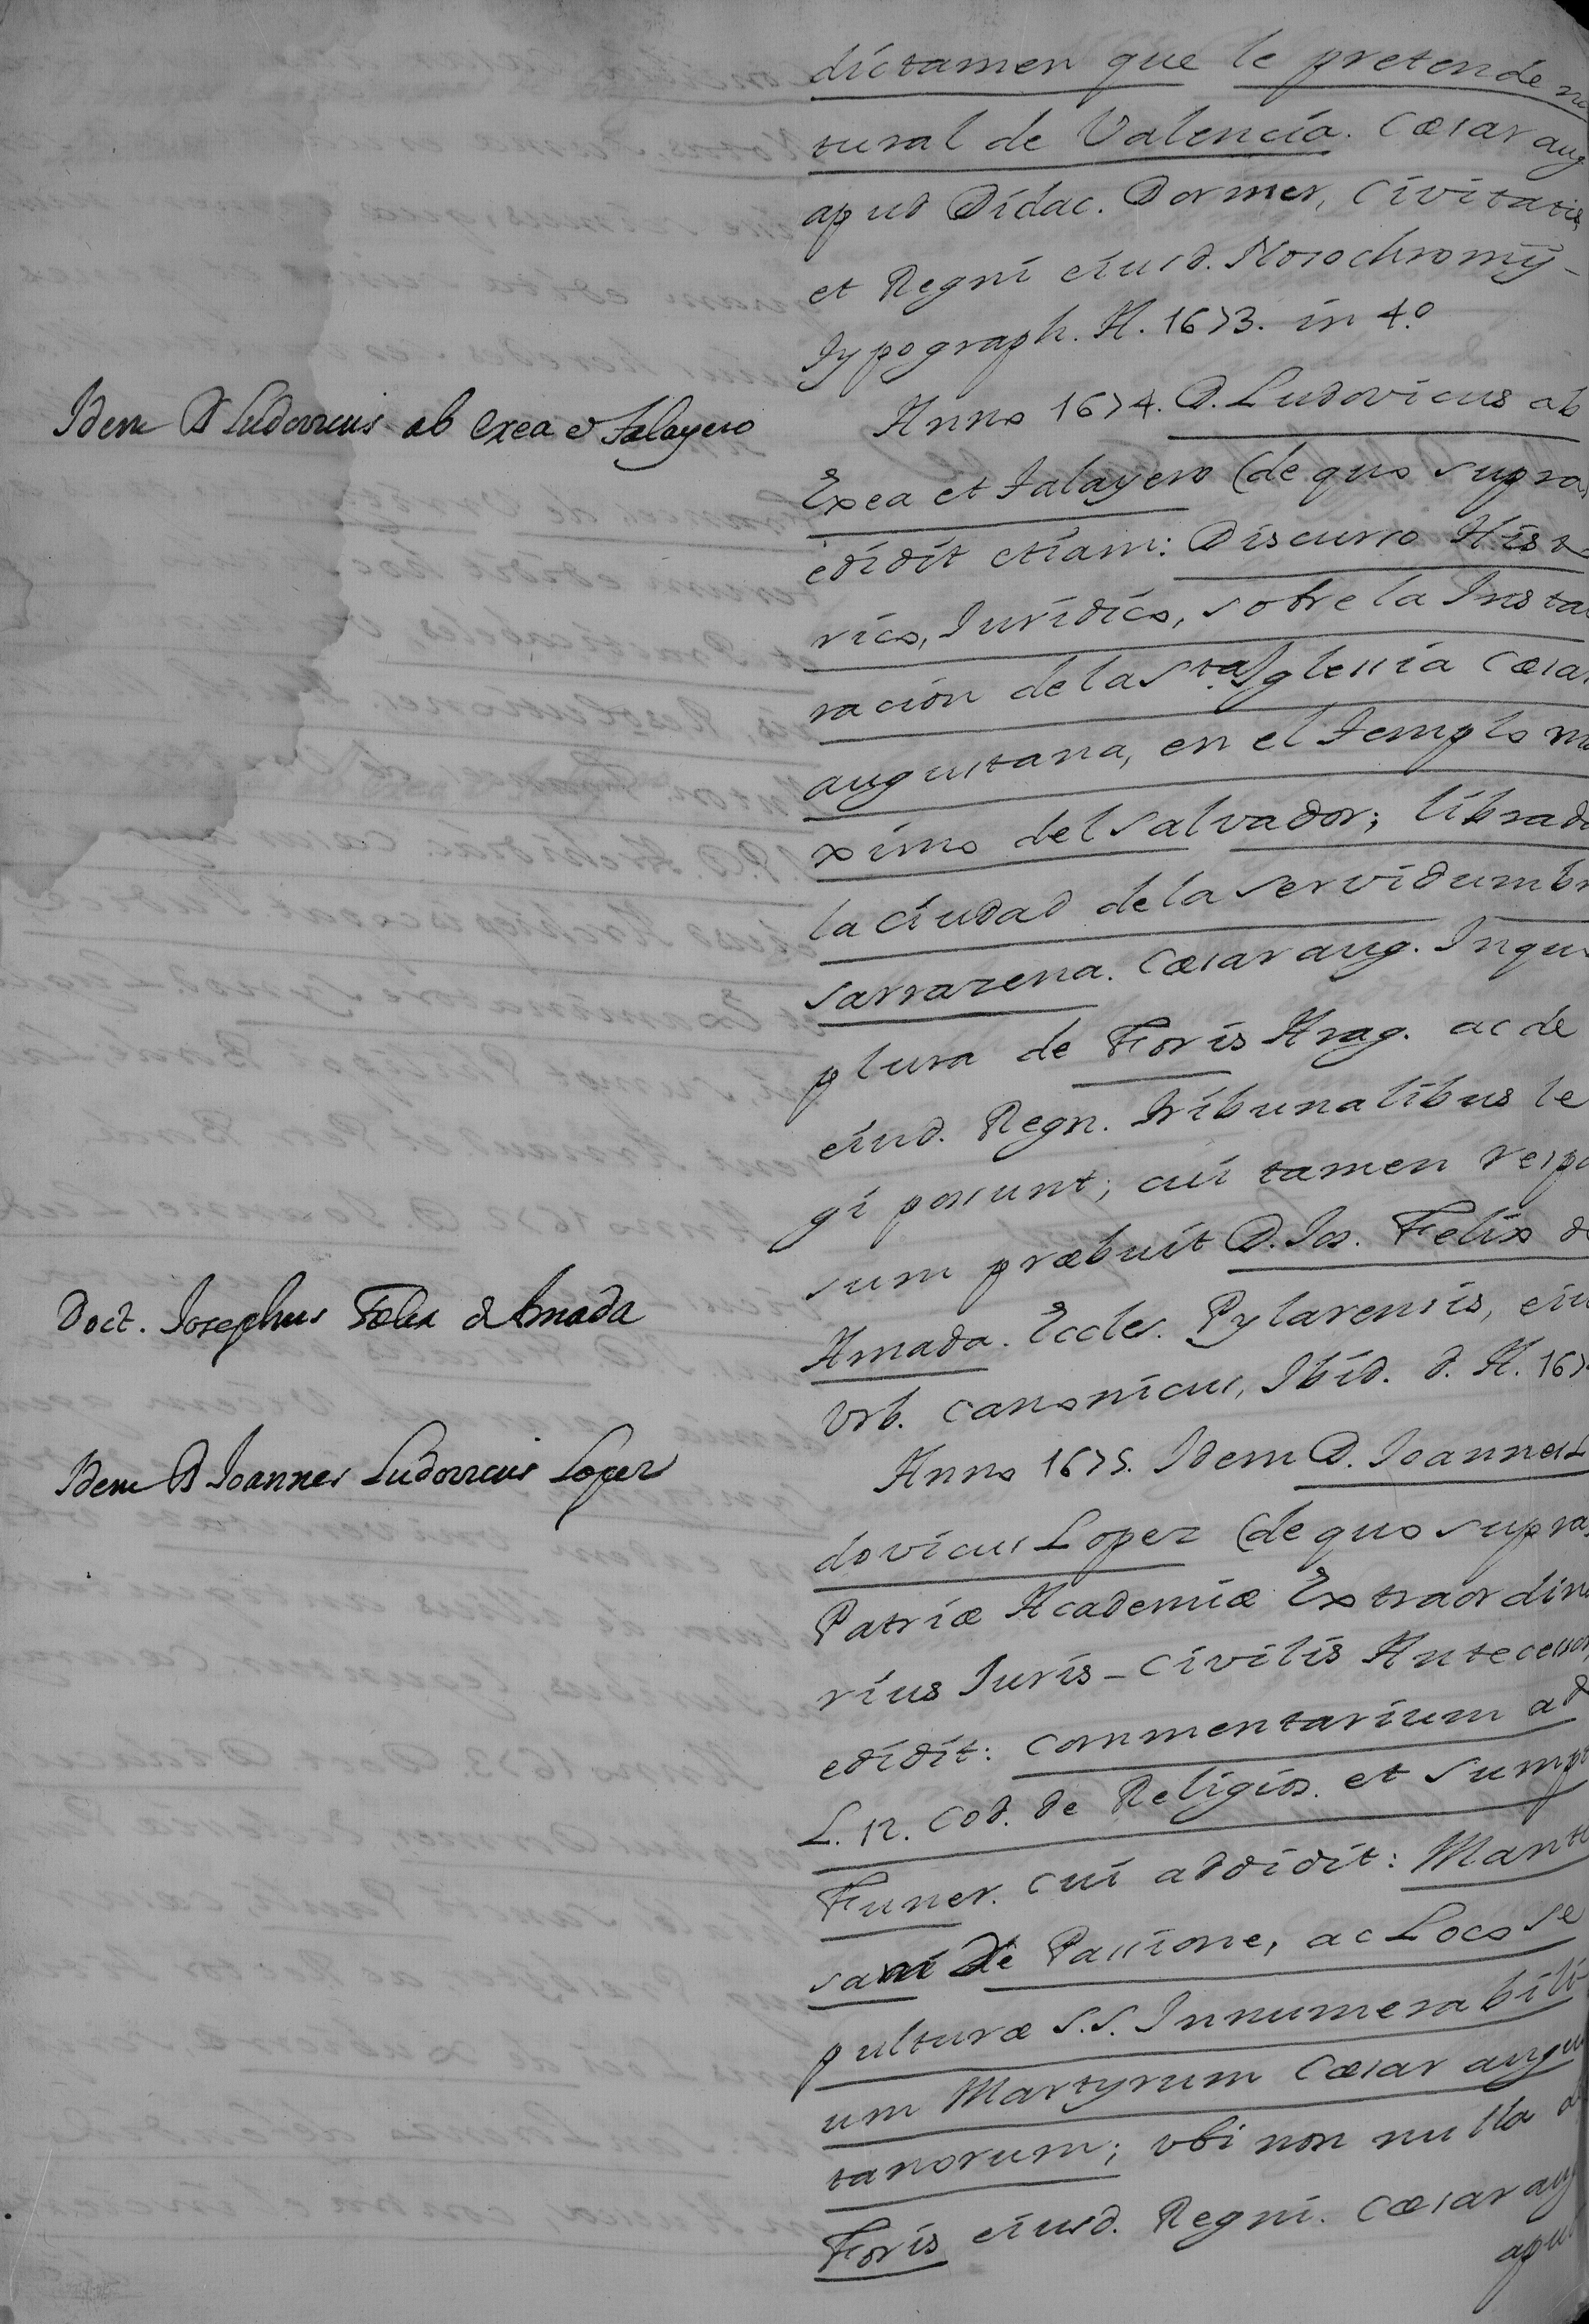 dictamen que le pretende na
tural de Valencia. Cæsaraug
apud Didac. Dormer, Civitatis,
et Regni eiusd. Nosochromÿ-
Typograph. A. 1673. in 4.º
Idem D Ludovicus ab Exea et Talayero
Anno 1674. D. Ludovicus ab
Exea et Talayero (de quo supra)
edidit etiam: Discurso Histo
rico, Juridico, sobre la Instau
racion de la S.ta Iglessia Cæsar
augustana, en el Templo ma
ximo del Salvador; librada
la Ciudad de la servidumbr
sarrazena. Cæsaraug. In quo
plura de Foris Arag. ac de
eiusd. Regn. Tribunalibus le
gi possunt; cui tamen respo
sum præbuit D. Jos. Felix de
Doct. Josephus Felix de Amada
Amada. Eccles. Pylarensis, eiu
Vrb. Canonicus, Ibid. d. A. 167
Idem D Joannes Ludovicus Lopez
Anno 1675. Idem D. Joannes L
dovicus Lopez (de quo supra)
Patriæ Academiæ Extraordina
rius Juris-Civilis Antecessor,
edidit: Commentarium ad
L. 12. Cod. de Religios. et Sumpt
Funer. cui addidit: Mantis
sam de Passione, ac Loco se
pulturæ S.S. Innumerabili
um Martyrum Cæsaraugus
tanorum; vbi non nulla d
Foris eiusd. Regni. Cæsaraug
apud